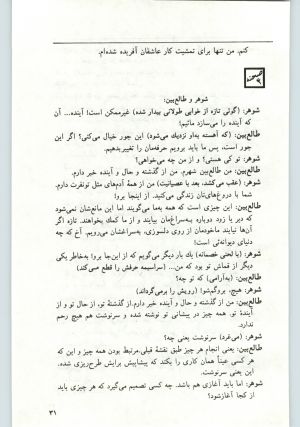 کنم. من تنها برای تمشیت کار عاشقان آفریده شده‌ام.
صحنه
شوهر و طالع‌بین:
شوهر: (گوئی تازه از خوابی طولانی بیدار شده) غیرممکن است! آینده... آن
که آینده را می‌سازد مائیم!
طالع‌بین: (که آهسته به‌او نزدیك می‌شود) این جور خیال می‌کنی؟ اگر این
جور است، پس ما باید برویم حرفه‌مان را تغییر بدهیم.
شوهر: تو کی هستی؟ و از من چه می‌خواهی؟
طالع‌بین: من طالع‌بین شهرم. من از گذشته و حال و آینده خبر دارم.
شوهر: (عقب می‌کشد، بعد با عصبانیت) من از همهٔ آدم‌های مثل تو نفرت دارم.
شما با دروغ‌های‌تان زندگی می‌کنید. از اینجا برو!
طالع‌بین: این چیزی است که همه به‌ما می‌گویند اما این مانع‌شان نمی‌شود
که دیر یا زود دوباره به‌سراغ‌مان بیایند و از ما کمك بخواهند. تازه اگر
آن‌ها نیایند ماخودمان از روی دلسوزی، به‌سراغشان می‌رویم. آخ که چه
دنیای دیوانه‌ئی است!
شوهر: (با لحنی خصمانه) یك بار دیگر می‌گویم که از این‌جا برو! به‌خاطر یکی
دیگر از قماش تو بود که من... (سراسیمه حرفش را قطع می‌کند)
طالع‌بین: (به‌آرامی) که تو چه؟
شوهر: هیچ. بروگم‌شو! (رویش را برمی‌گرداند)
طالع‌بین: من از گذشته و حال و آینده خبر دارم. از گذشتهٔ تو، از حال تو و از
آیندهٔ تو. همه چیز در پیشانی تو نوشته شده و سرنوشت هم هیچ رحم
ندارد.
شوهر: (می‌غرد) سرنوشت یعنی چه؟
طالع‌بین: یعنی انجام هر چیز طبق نقشهٔ قبلی. مرتبط بودن همه چیز و این که
هر کسی عیناً همان کاری را بکند که پیشاپیش برایش طرح‌ریزی شده.
این یعنی سرنوشت.
شوهر: اما باید آغازی هم باشد. چه کسی تصمیم می‌گیرد که هر چیزی باید
از کجا آغازشود؟
۳۱